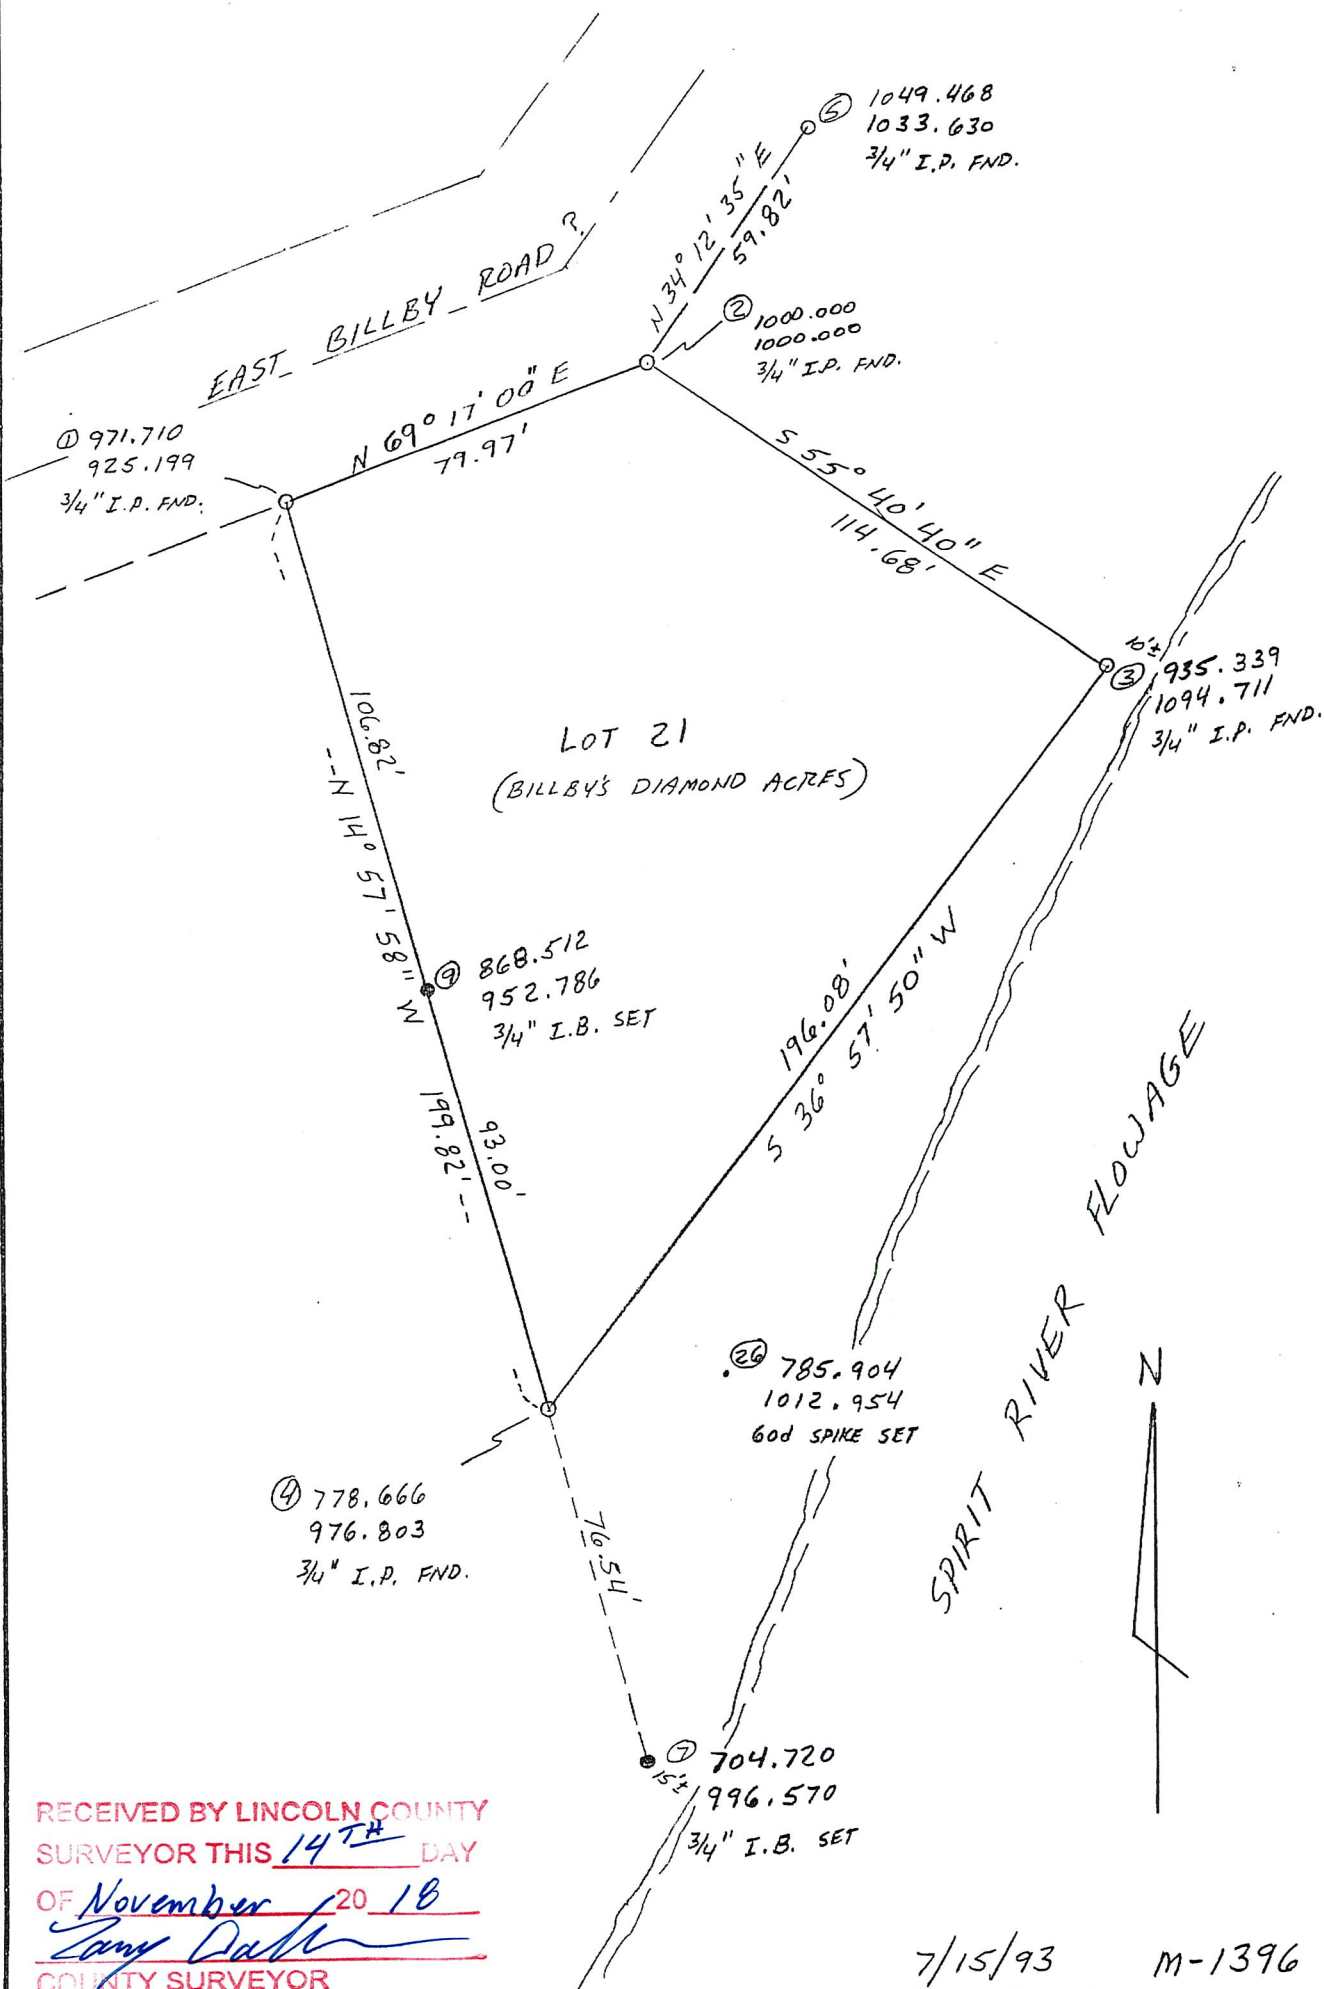 ⑤ 1049.468
1033.630
3/4" I.P. FND.
N 34° 12' 35" E
59.82'
EAST BILLBY ROAD ?
② 1000.000
1000.000
3/4" I.P. FND.
① 971.710
925.199
3/4" I.P. FND.
N 69° 17' 00" E
79.97'
S 55° 40' 40" E
114.68'
③ 935.339
1094.711
3/4" I.P. FND.
106.82'
LOT 21
(BILLBY'S DIAMOND ACRES)
--N 14° 57' 58" W
199.82'---
⑨ 868.512
952.786
3/4" I.B. SET
196.08'
S 36° 57' 50" W
93.00'
SPIRIT RIVER FLOWAGE
㉖ 785.904
1012.954
60d SPIKE SET
N
④ 778.666
976.803
3/4" I.P. FND.
76.54'
⑦ 704.720
15'±
996.570
3/4" I.B. SET
RECEIVED BY LINCOLN COUNTY
SURVEYOR THIS 14TH DAY
OF November 20 18
COUNTY SURVEYOR
7/15/93 M-1396